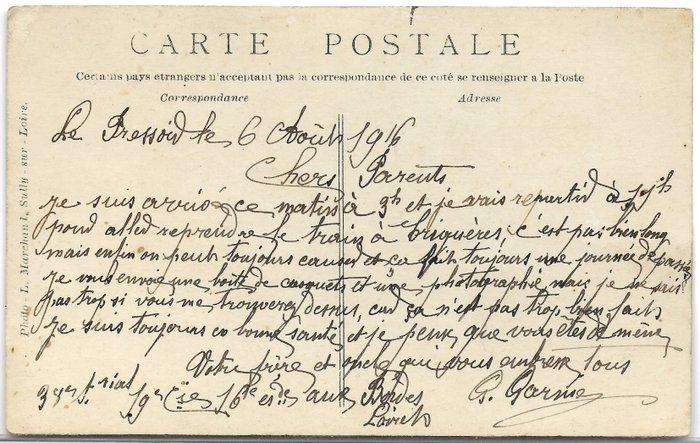 CARTE POSTALE
Certains pays etrangers n'acceptant pas la correspondance de ce coté se renseigner a la Poste
Correspondance
Adresse
Photo - L. Marchand, Sully - sur - Loire.
Le Pressoir le 6 Août 1916
Chers Parents
je suis arrivé ce matin à 9h et je vais repartir à
pour aller reprendre le train à c'est pas bien long
mais enfin on peut toujours causer et ca fait toujours une journée de passé
je vous envoie une boite de et une photographie mais je ne sais
pas trop si vous me trouverez dessus, car ça n'est pas trop bien fait
je suis toujours en bonne santé et je pense que vous êtes de même
Votre frère et oncle qui vous embrasse tous
G. Garnier
19e Cie 16e aux Bordes
Loiret